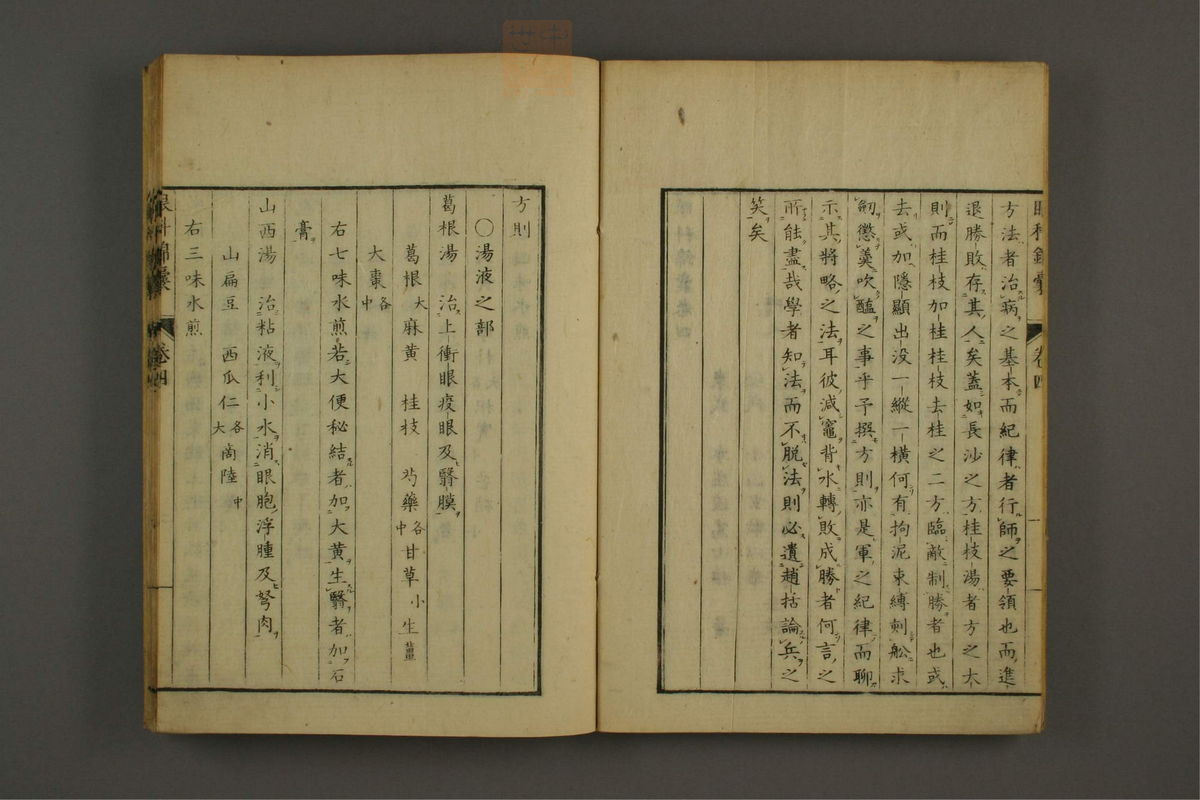 眼科錦囊 卷四
方法者治病之基本而紀律者行師之要領也而進
退勝敗存其人矣蓋如長沙之方桂枝湯者方之大
則而桂枝加桂桂枝去桂之二方臨敵制勝者也或
去或加隱顯出没一縱一橫何有拘泥束縛刻舩求
劒懲羹吹醢之事乎予撰方則亦是軍之紀律而聊
示其將略之法耳彼減竈背水轉敗成勝者何言之
所能盡哉學者知法而不脱法則必遺趙括論兵之
笑矣
方則
〇湯液之部
葛根湯 治上衝眼疫眼及翳膜
葛根大麻黄 桂枝 芍藥各中甘草小生薑
大棗各中
右七味水煎若大便秘結者加大黄生翳者加石
膏
山西湯 治粘液利小水消眼胞浮腫及胬肉
山扁豆 西瓜仁各大啇陸中
右三味水煎
眼科錦囊 卷四